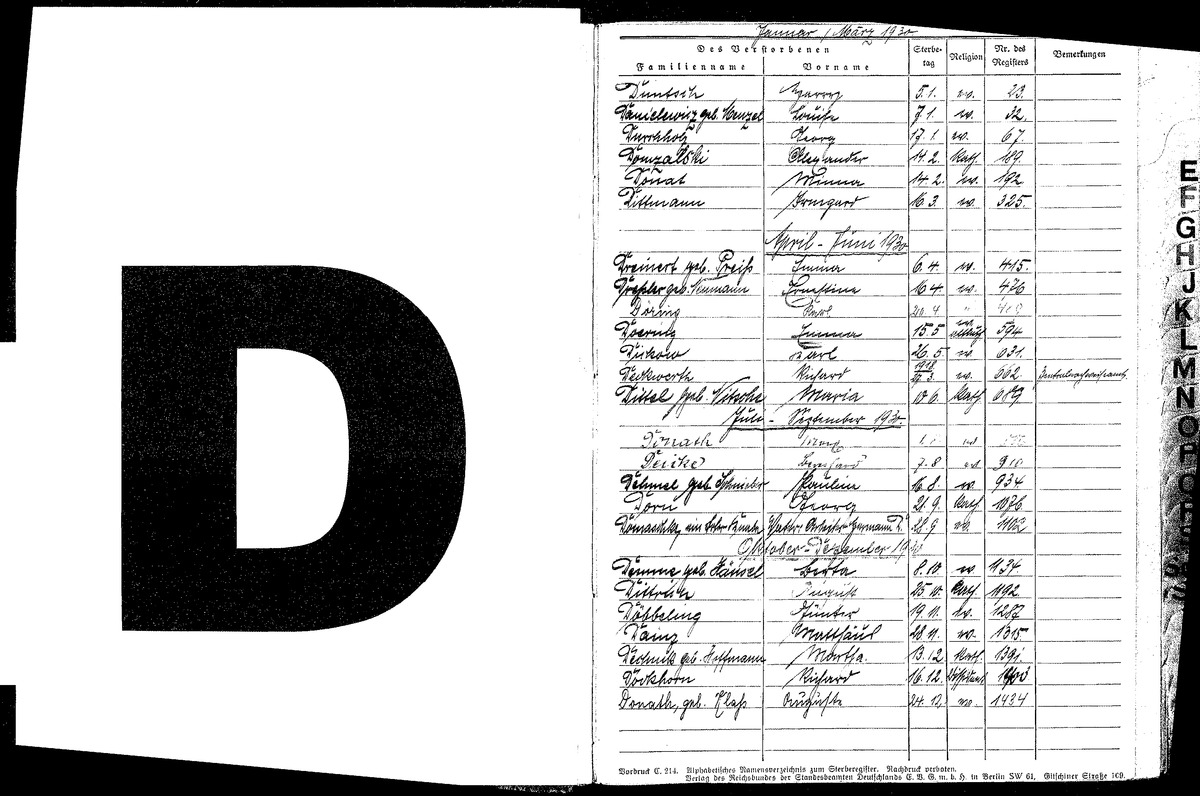 D
Januar / März 1930
Des Verstorbenen Sterbe-tag Religion Nr. des Registers Bemerkungen
Familienname Vorname
Duntsch 5.1. ev. 23.
Danielewicz geb. Menzel Louise 7.1. ev. 32.
Durchholz Georg 17.1. ev. 67.
Domzalski Alexander 14.2. kath. 189.
Donat Minna 14.2. ev. 192
Dittmann Irmgard 16.3. ev. 325.
April - Juni 1930
Dreinert geb. Preiß Emma 6.4. ev. 415.
Dreßler geb. Neumann Ernestine 16.4 ev. 476
Döring Karl 20.4 "
Doering Emma 15.5 594
Dukow Karl 26.5 ev. 631.
Deckwerth Richard 1918 ev. 662.
Dittel geb. Nitsche Maria 10.6. kath. 689
Juli - September 1930.
Donath ev
Deicke Bernhard 7.8 ev 910.
Dehmel geb. Schneider Pauline 16.8. ev. 934
Dorn Georg 21.9. kath. 1076
Domaschke, ein toter Knabe Vater: Hermann D. 28.9 ev. 1102
Oktober - Dezember 1930
Demme geb. Häusel Berta 8.10. ev. 1134
Dittrich August 25.10. kath. 1192
Döbbeling Günter 19.11. ev. 1287
Dainz Matthäus 28.11. ev. 1315
Dechnik geb. Hoffmann Martha. 13.12. kath. 1391.
Dockhorn Richard 16.12. Dissident
Donath, geb. Klaß Auguste 24.12. ev. 1434
Vordruck C. 214. Alphabetisches Namensverzeichnis zum Sterberegister. Nachdruck verboten.
Verlag des Reichsbundes der Standesbeamten Deutschlands E. V. G. m. b. H. in Berlin SW 61, Gitschiner Straße 109.
E
F
G
H
J
K
L
M
N
O